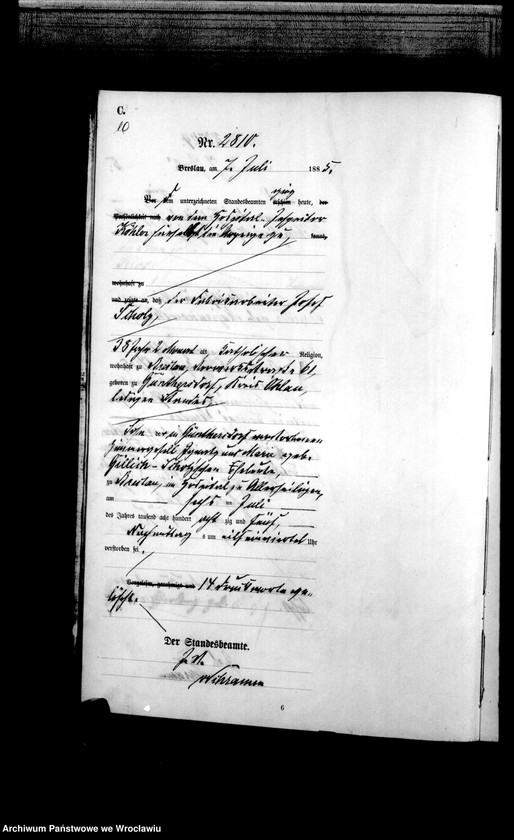 C.
10
Nr. 2810.
Breslau, am 7. Juli 1885.
Vor dem unterzeichneten Standesbeamten erschien heute, der
Persönlichkeit nach von dem Hospital-Inspektor
Köhler hierselbst die Anzeige kannt,
wohnhaft zu
und zeigte an, daß der Fabrikarbeiter Josef
Scholz,
38 Jahr 2 Monat alt, katholischer Religion,
wohnhaft zu Breslau, Vorwerksstraße 61,
geboren zu Günthersdorf, Kreis Ohlau,
ledigen Standes,
Sohn der in Günthersdorf verstorbenen
und Marie geb.
Scholzschen Eheleute
zu Breslau, im Hospital zu Allerheiligen,
am sechs ten Juli
des Jahres tausend acht hundert acht zig und fünf,
Nachmittag s um Uhr
verstorben sei.
Vorgelesen, genehmigt und 14 Druckworte ge-
löscht.
Der Standesbeamte.
J. V.
Schramm
6
Archiwum Państwowe we Wrocławiu